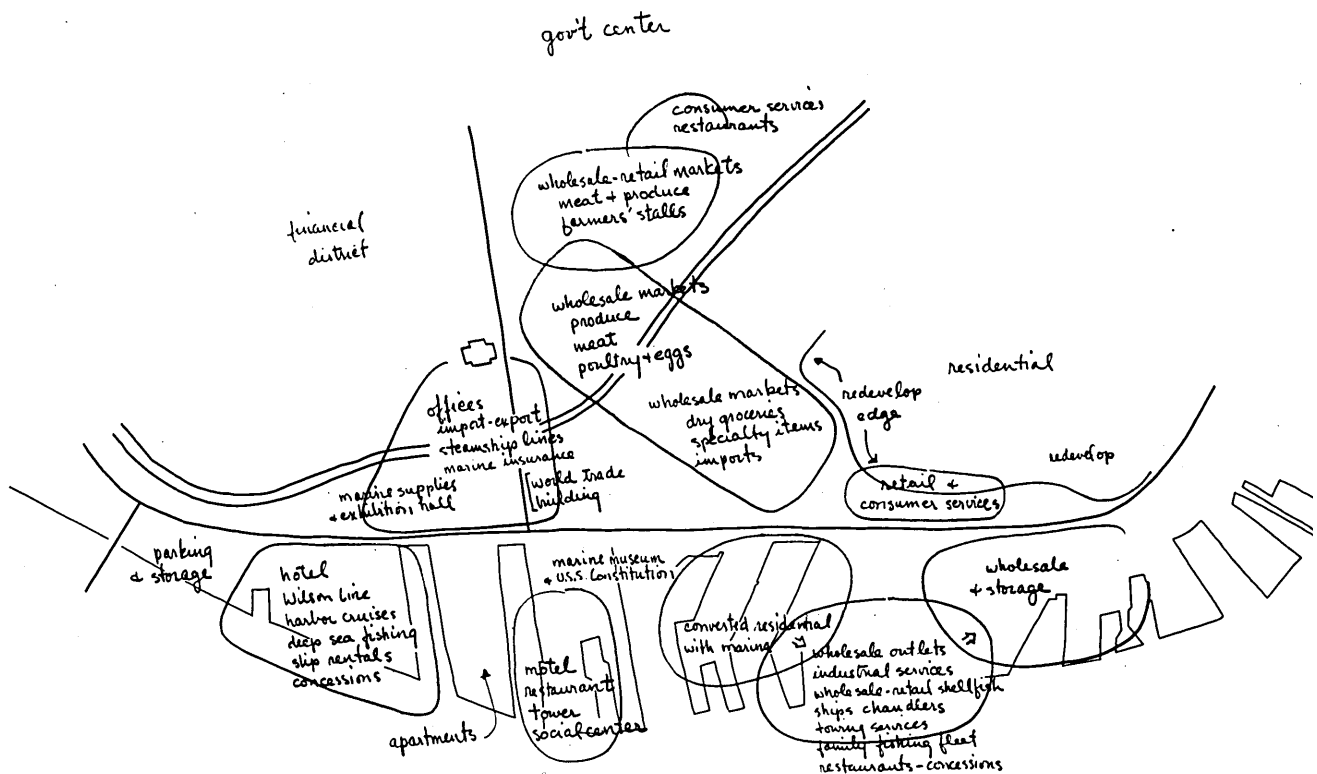 gov't center
consumer services
restaurants
wholesale-retail markets
meat + produce
farmers' stalls
financial
district
wholesale markets
produce
meat
poultry + eggs
residential
redevelop
edge
wholesale markets
dry groceries
specialty items
imports
offices
import-export
steamship lines
marine insurance
redevelop
world trade
building
marine supplies
+ exhibition hall
retail +
consumer services
parking
& storage
hotel
Wilson Line
harbor cruises
deep sea fishing
slip rentals
concessions
marine museum
+ U.S.S. Constitution
wholesale
+ storage
converted residential
with marina
motel
restaurant
tower
social center
apartments
wholesale outlets
industrial services
wholesale-retail shellfish
ships chandlers
towing services
family fishing fleet
restaurants-concessions